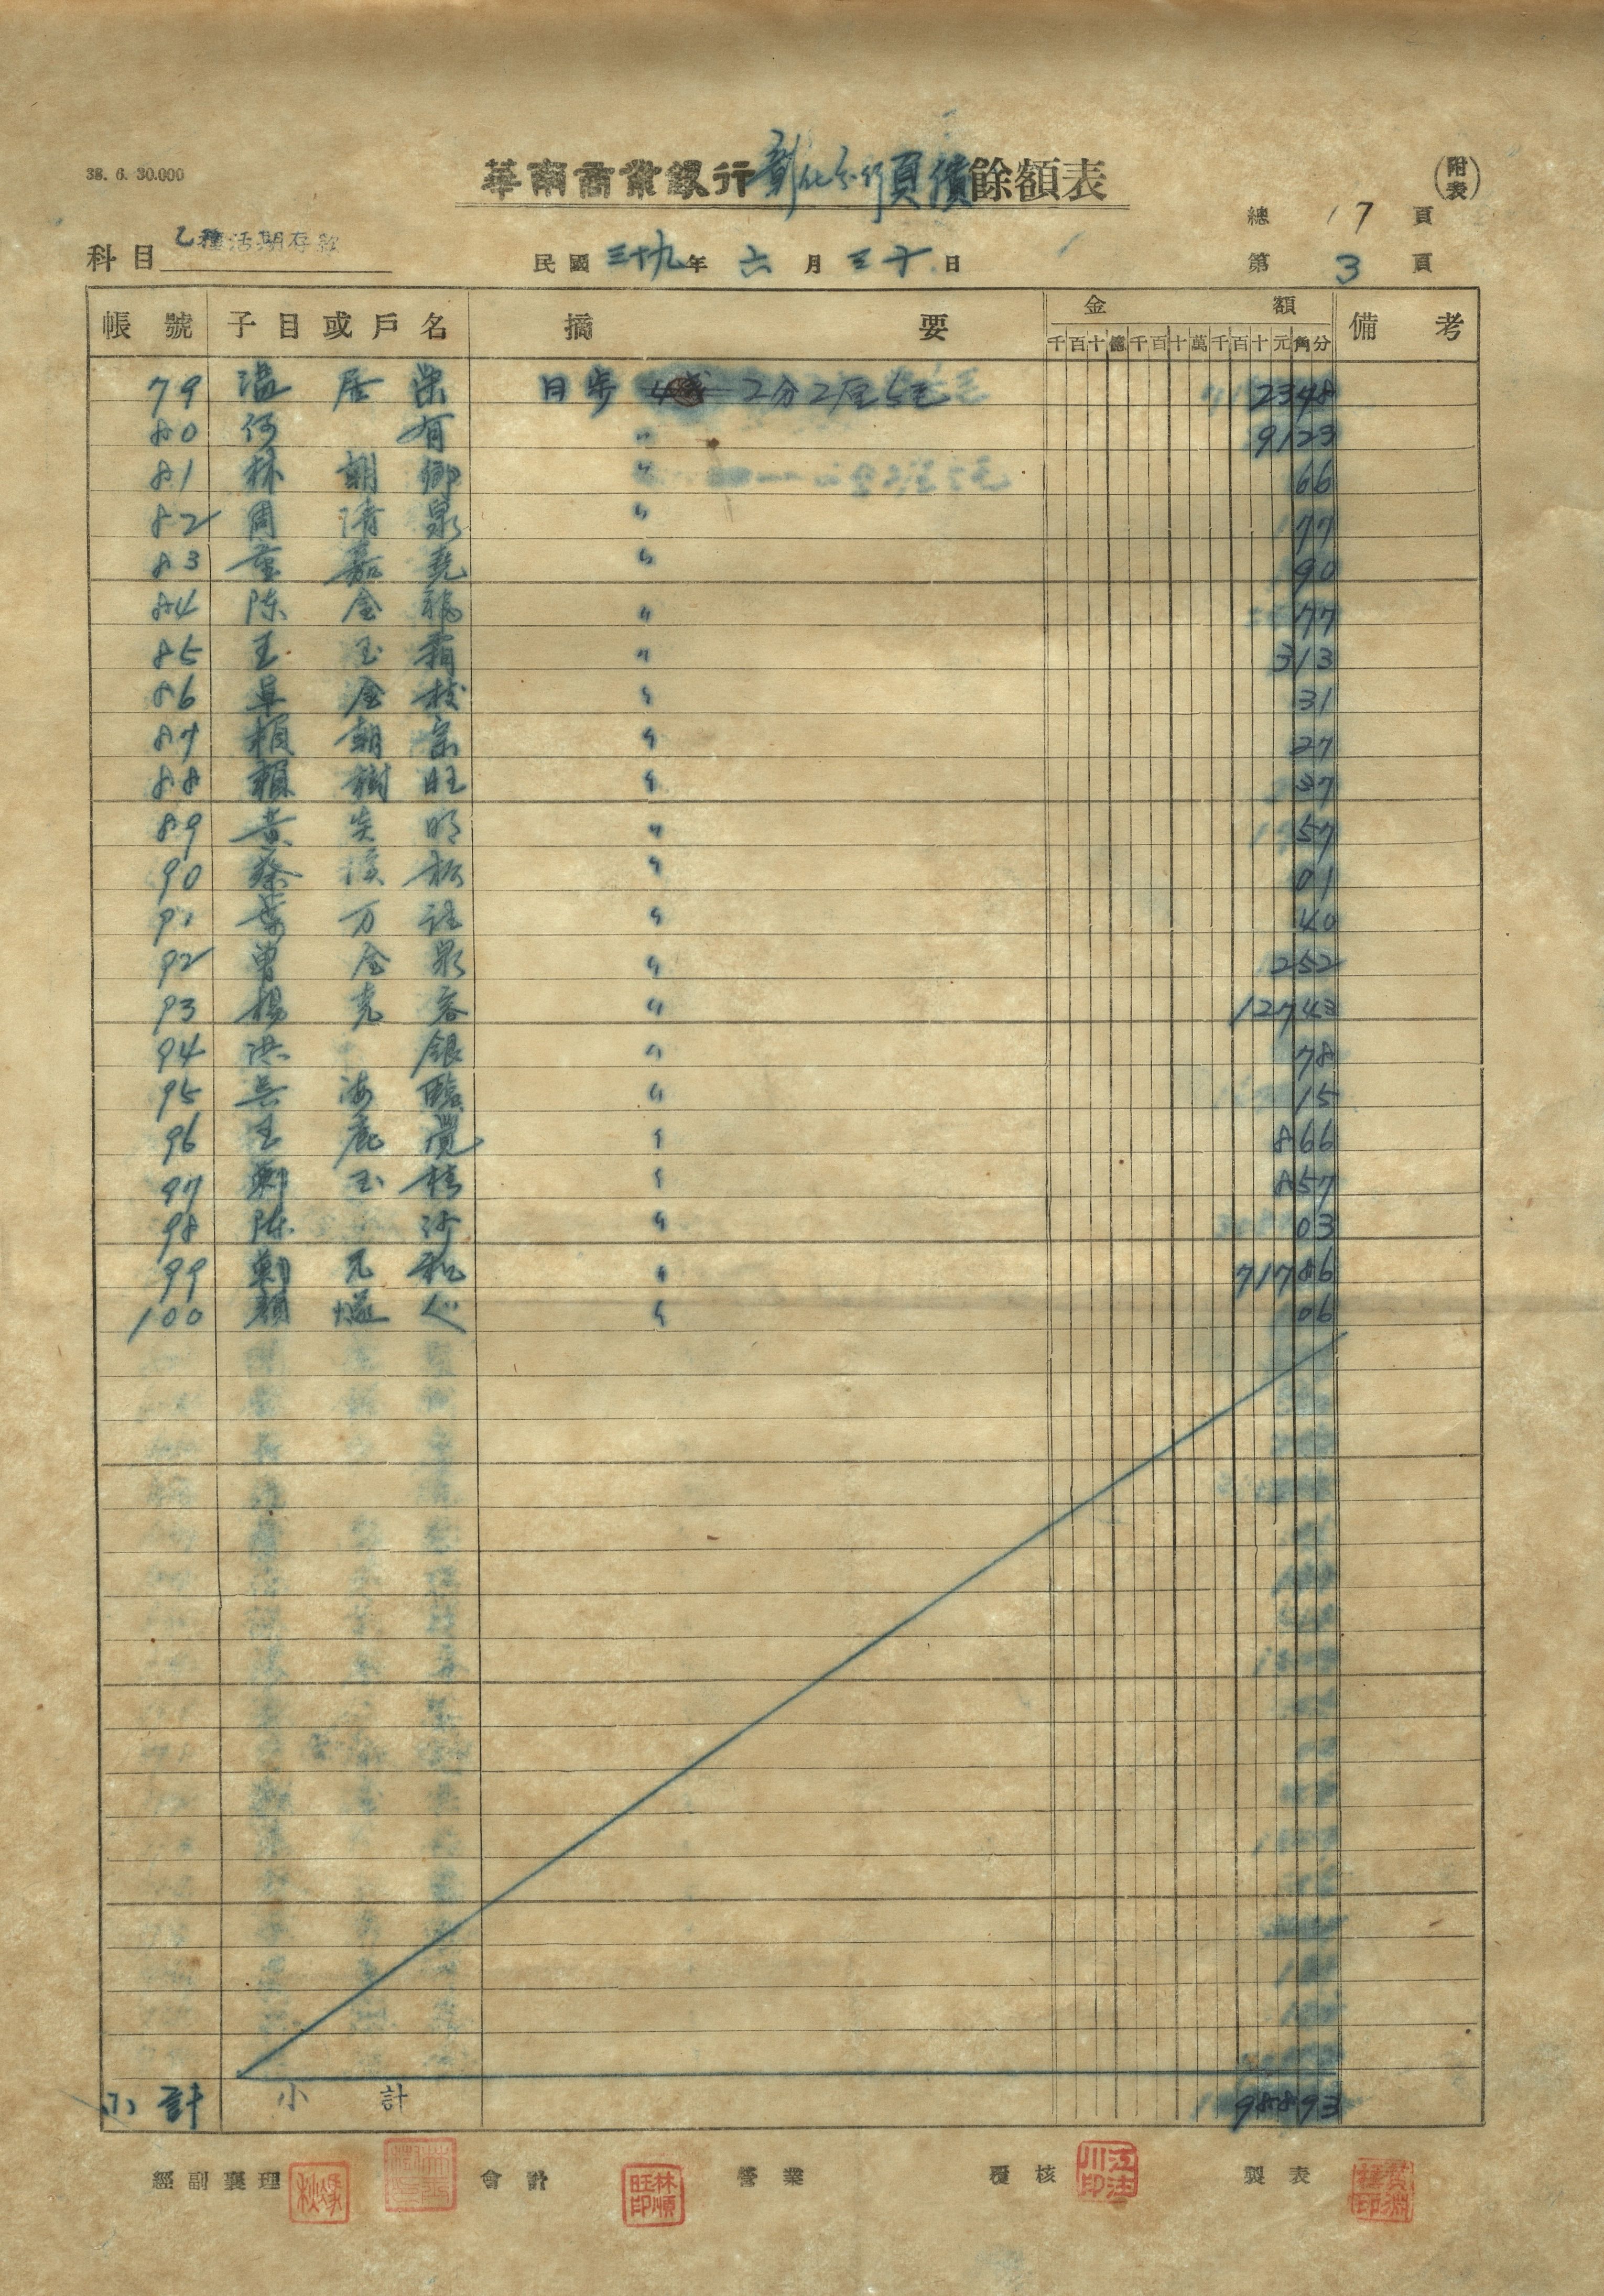 38. 6. 30.000
華南商業銀行彰化分行負債餘額表
(附表)
總 17 頁
科目 乙種活期存款
民國 三十九 年 六 月 三十 日
第 3 頁
帳號 子目或戶名 摘要 金額 備考
千百十億千百十萬千百十元角分
79 溫居 日步 2分2厘5毛 2348
80 何有 〃 9123
81 林朝鄉 〃 66
82 周清泉 〃 77
83 童嘉堯 〃 90
84 陈金 〃 77
85 王玉霜 〃 313
86 卓金枝 〃 31
87 賴朝宗 〃 27
88 賴樹旺 〃 37
89 黃炎明 〃 57
90 蔡 〃 01
91 葉万 〃 40
92 曾金泉 〃 252
93 楊克 〃 12743
94 洪銀 〃 78
95 吳海臨 〃 15
96 王 〃 866
97 鄭玉 〃 857
98 陈沙 〃 03
99 鄭元和 〃 71786
100 顏 〃 06
小計 小計 98893
經副襄理 會計 林順旺印 營業 覆核 製表